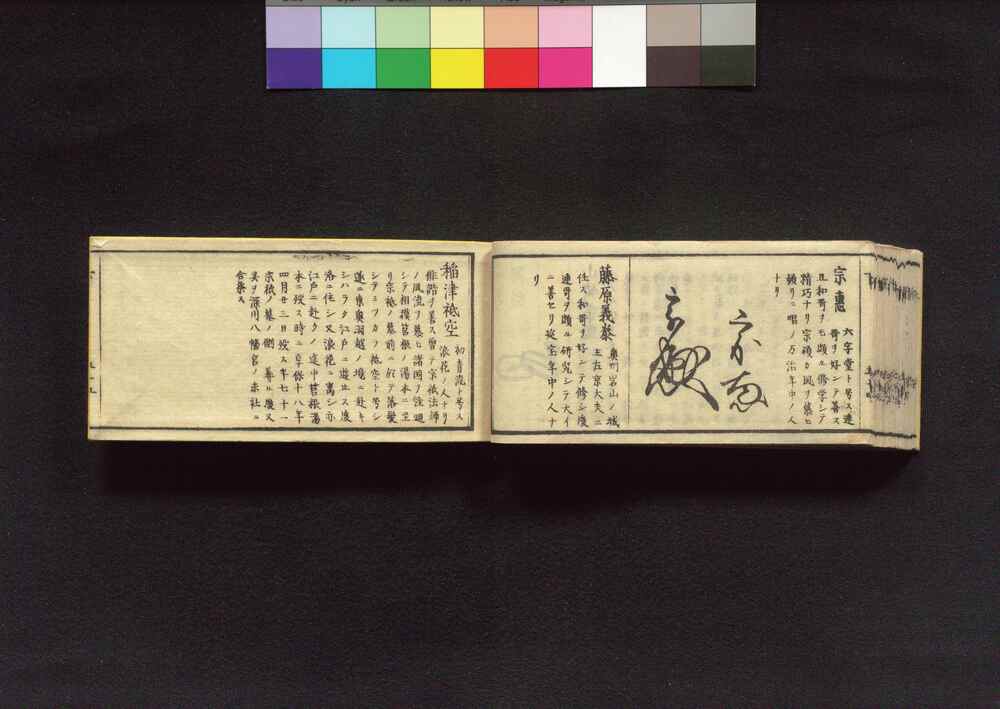 宗恵
六字堂ト号ス連
哥ヲ好シテ善ス
且和哥ヲモ頗ル修学シテ
精巧ナリ宗碩カ風ヲ慕ヒ
頻リニ唱ノ万治年中ノ人
ナリ
藤原義泰
奥州岩山ノ城
主左京大夫ニ
任ス和哥ヲ好シテ修シ度
連哥ヲ頗ル研究シテ大イ
ニ善セリ延宝年中ノ人ナ
リ
稲津祗空
初青流ト号ス
浪花ノ人ナリ
俳諧ヲ善ス曽テ宗祗法師
ノ風流ヲ慕ヒ諸国ヲ經遊
シテ相摸筥根ノ湯本ニ至
リ宗祗ノ墓前ニ於テ落髪
シテミツカラ祗空ト号シ
遂ニ東奥羽越ノ境ニ赴キ
シハラク江戸ニ遊止ス後
洛ニ住シ又浪花ニ寓シ亦
江戸ニ赴クノ途中筥根湯
本ニ歿ス時ニ享保十八年
四月廿三日歿ス年七十一
宗祗ノ墓ノ側ニ葬ル慶又
其ヲ深川八幡宮ノ末社ニ
合祭ス